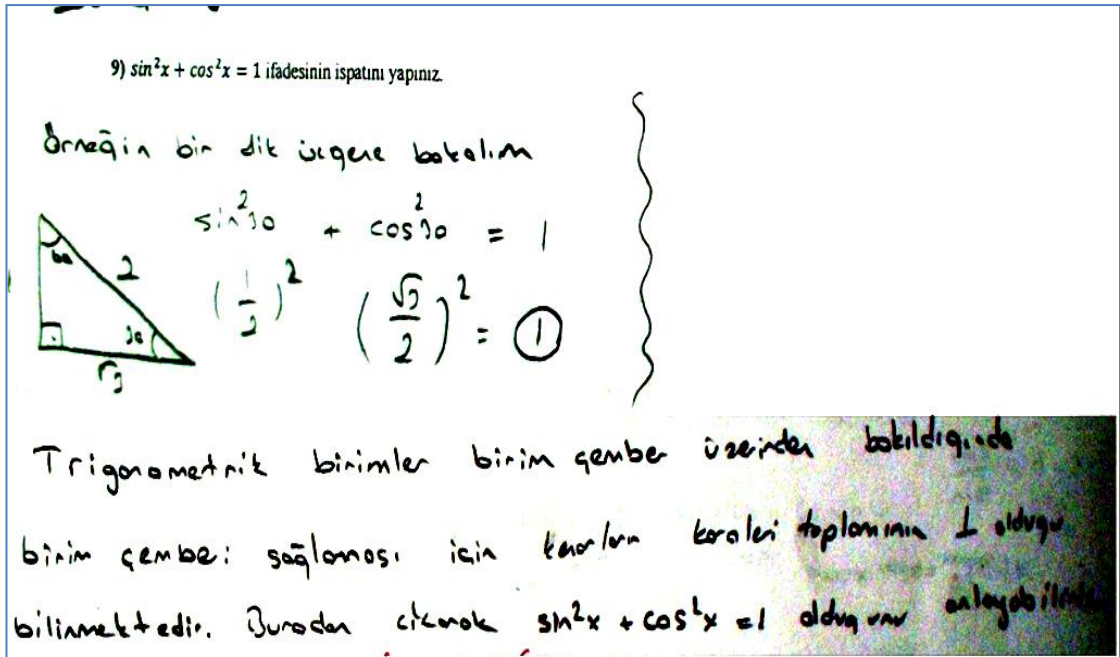 9) sin²x + cos²x = 1 ifadesinin ispatını yapınız.
Örneğin bir dik üçgene bakalım
sin²30 + cos²30 = 1
60 2 (1/2)² (√3/2)² = 1
30
√3
Trigonometrik birimler birim çember üzerinden bakıldığında
birim çemberi sağlaması için kenarların kareleri toplamının 1 olduğu
bilinmektedir. Buradan çıkarak sin²x + cos²x = 1 olduğunu